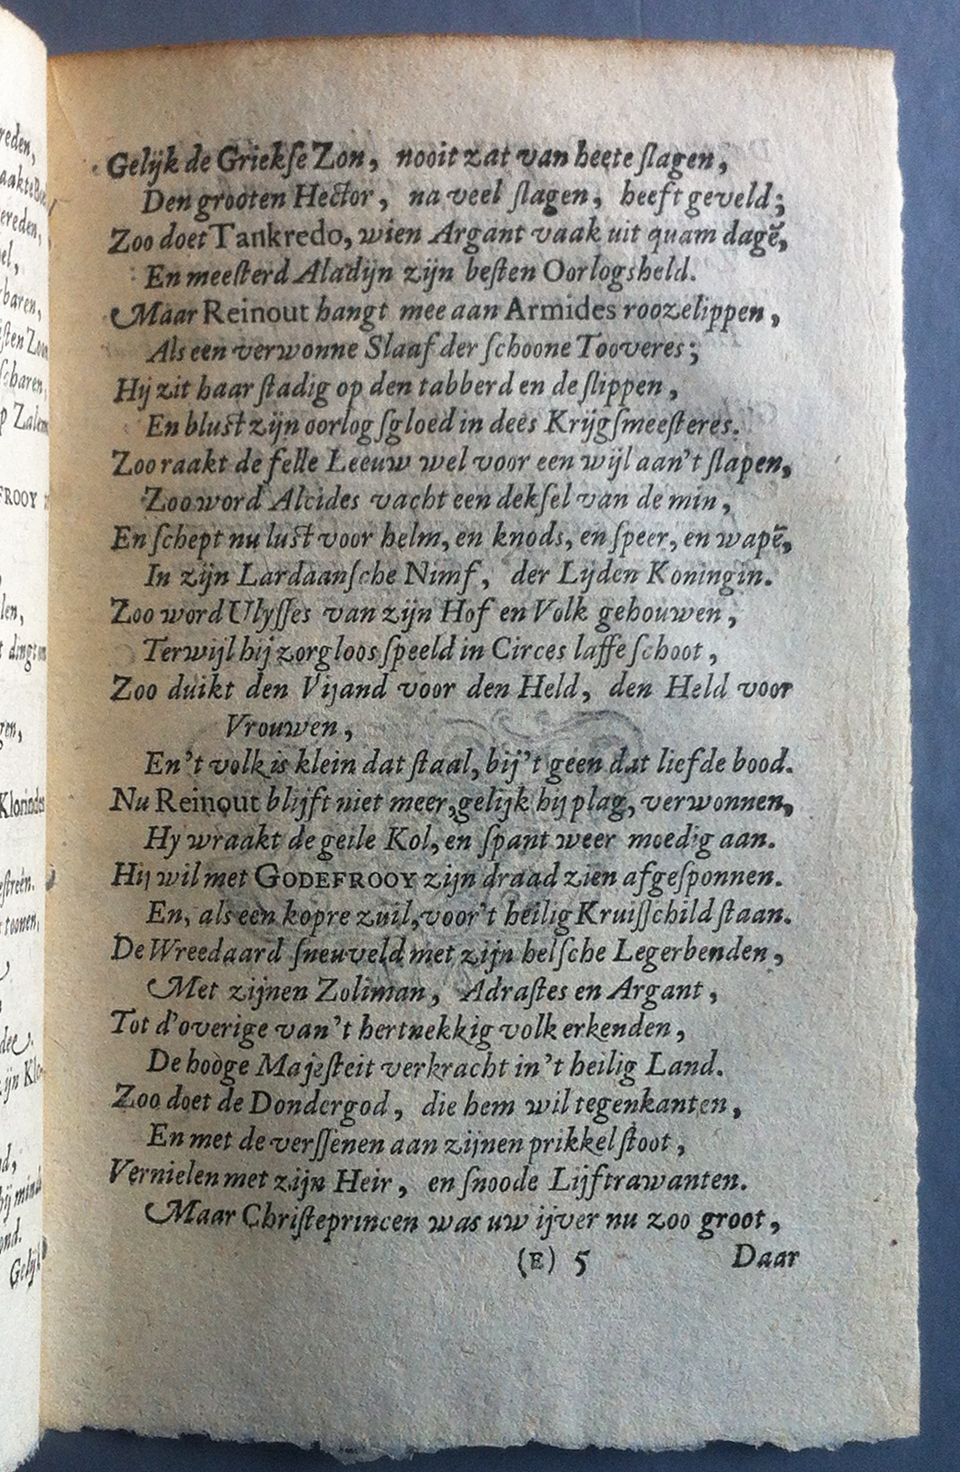 Gelijk de Griekſe Zon, nooit zat van heete ſlagen,
Den grooten Hector, na veel ſlagen, heeft geveld;
Zoo doet Tankredo, wien Argant vaak uit quam dagẽ,
En meeſterd Aladijn zijn beſten Oorlogsheld.
Maar Reinout hangt mee aan Armides roozelippen,
Als een verwonne Slaaf der ſchoone Tooveres;
Hij zit haar ſtadig op den tabberd en de ſlippen,
En bluſt zijn oorlogſgloed in dees Krijgſmeeſteres.
Zoo raakt de felle Leeuw wel voor een wijl aan't ſlapen,
Zoo word Alcides vacht een dekſel van de min,
En ſchept nu luſt voor helm, en knods, en ſpeer, en wapẽ,
In zijn Lardaanſche Nimf, der Lijden Koningin.
Zoo word Ulyſſes van zijn Hof en Volk gehouwen,
Terwijl hij zorgloos ſpeeld in Circes laffe ſchoot,
Zoo duikt den Vijand voor den Held, den Held voor
Vrouwen,
En't volk is klein dat ſtaal, bij't geen dat liefde bood.
Nu Reinout blijft niet meer, gelijk hij plag, verwonnen,
Hy wraakt de geile Kol, en ſpant weer moedig aan.
Hij wil met GODEFROOY zijn draad zien afgeſponnen.
En, als een kopre zuil, voor't heilig Kruiſſchild ſtaan.
De Wreedaard ſneuveld met zijn helſche Legerbenden,
Met zijnen Zoliman, Adraſtes en Argant,
Tot d'overige van't hertnekkig volk erkenden,
De hooge Majeſteit verkracht in't heilig Land.
Zoo doet de Dondergod, die hem wil tegenkanten,
En met de verſſenen aan zijnen prikkel ſtoot,
Vernielen met zijn Heir, en ſnoode Lijftrawanten.
Maar Chriſteprincen was uw ijver nu zoo groot,
(E) 5 Daar